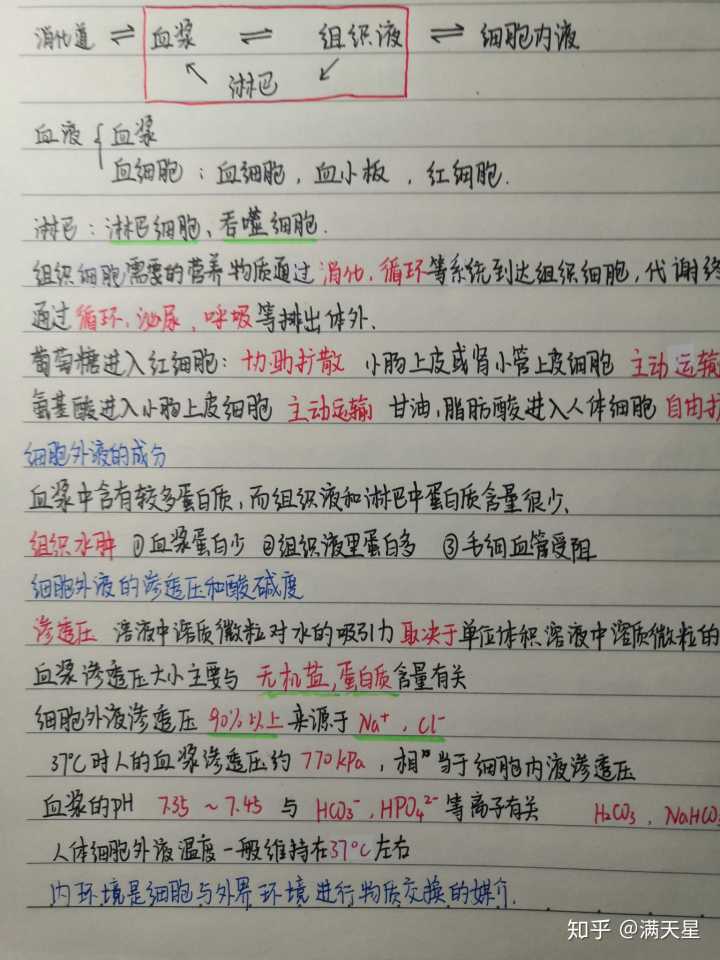 消化道 ⇌ 血浆 ⇌ 组织液 ⇌ 细胞内液
↖ 淋巴 ↙
血液 { 血浆
血细胞：血细胞，血小板，红细胞.
淋巴：淋巴细胞、吞噬细胞.
组织细胞需要的营养物质通过消化、循环等系统到达组织细胞，代谢终
通过循环、泌尿、呼吸等排出体外.
葡萄糖进入红细胞：协助扩散 小肠上皮或肾小管上皮细胞 主动运输
氨基酸进入小肠上皮细胞 主动运输 甘油，脂肪酸进入人体细胞 自由扩
细胞外液的成分
血浆中含有较多蛋白质，而组织液和淋巴中蛋白质含量很少、
组织水肿 ①血浆蛋白少 ②组织液里蛋白多 ③毛细血管受阻
细胞外液的渗透压和酸碱度
渗透压 溶液中溶质微粒对水的吸引力 取决于单位体积溶液中溶质微粒的
血浆渗透压大小主要与 无机盐，蛋白质含量有关
细胞外液渗透压 90%以上来源于 Na⁺、Cl⁻
37℃时人的血浆渗透压约 770kPa，相当于细胞内液渗透压
血浆的pH 7.35 ~ 7.45 与 HCO₃⁻、HPO₄²⁻ 等离子有关 H₂CO₃、NaHCO₃
人体细胞外液温度一般维持在37℃左右
内环境是细胞与外界环境进行物质交换的媒介.
知乎 @满天星